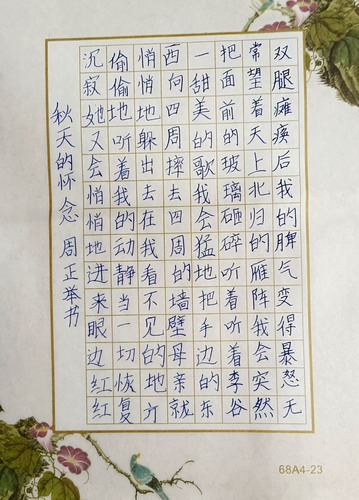 双腿瘫痪后我的脾气变得暴怒无
常望着天上北归的雁阵我会突然
把面前的玻璃砸碎听着听着李谷
一甜美的歌我会猛地把手边的东
西向四周摔去四周的墙壁母亲就
悄悄地躲出去在我看不见的地方
偷偷地听着我的动静当一切恢复
沉寂她又会悄悄地进来眼边红红
秋天的怀念 周正举书
68A4-23